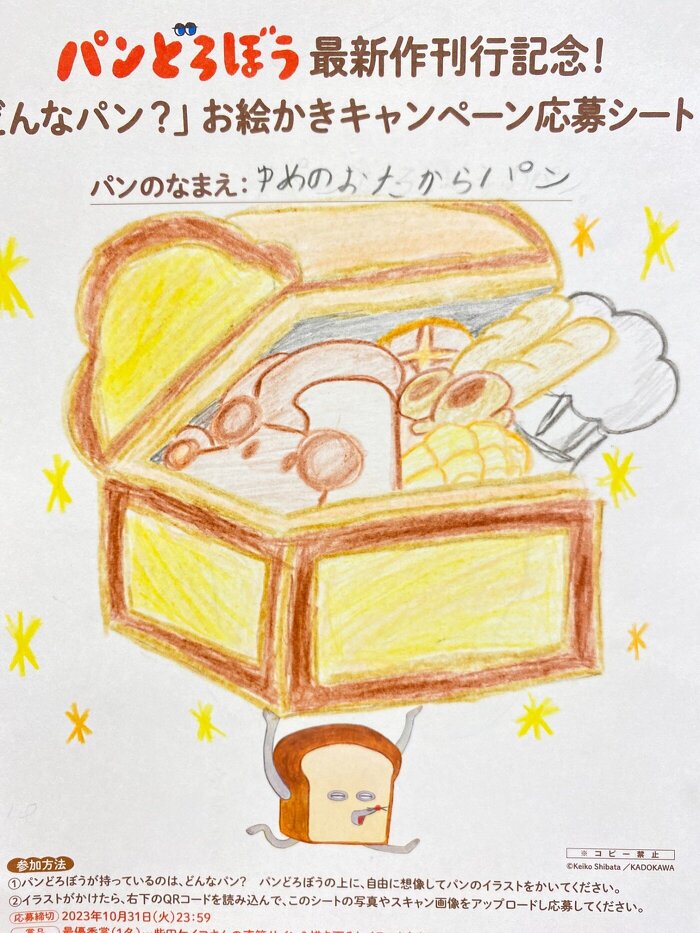 パンどろぼう 最新作刊行記念!
どんなパン?」お絵かきキャンペーン応募シート
パンのなまえ:ゆめのおたからパン
※コピー禁止
©Keiko Shibata/KADOKAWA
参加方法
①パンどろぼうが持っているのは、どんなパン? パンどろぼうの上に、自由に想像してパンのイラストをかいてください。
②イラストがかけたら、右下のQRコードを読み込んで、このシートの写真やスキャン画像をアップロードし応募してください。
応募締切 2023年10月31日(火)23:59
賞品 最優秀賞(1名)